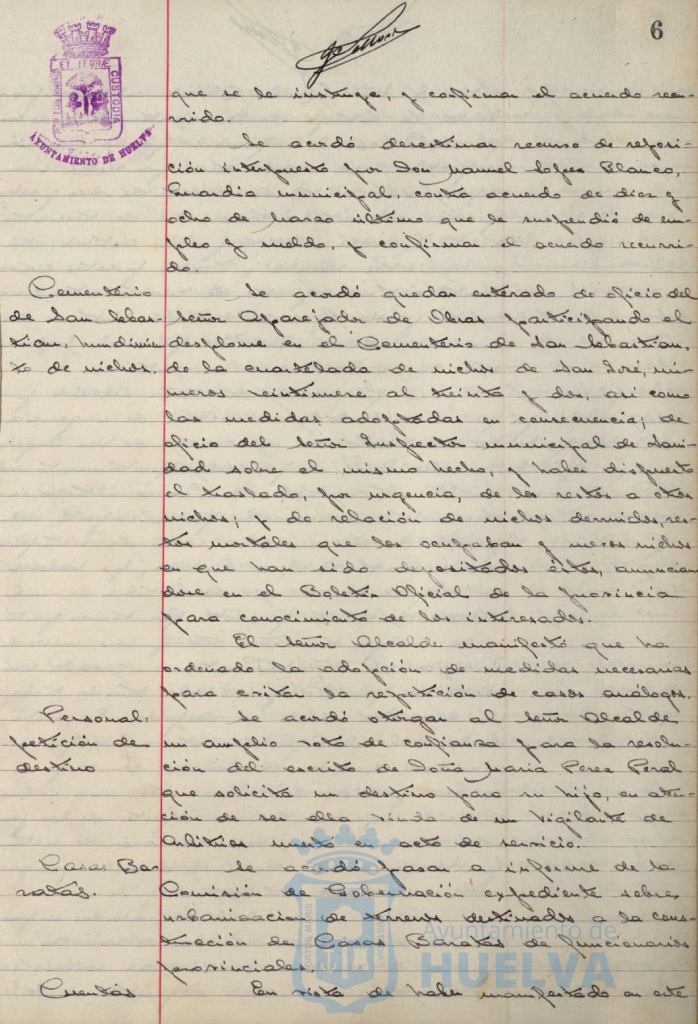 6
ET TERRÆ
CUSTODIA
AYUNTAMIENTO DE HUELVA
que se le instruye, y confirmar el acuerdo recu-
rrido.
Se acordó desestimar recurso de reposi-
ción interpuesto por Don Manuel López Blanco,
Guardia municipal, contra acuerdo de diez y
ocho de Marzo último que le suspendió de em-
pleo y sueldo, y confirmar el acuerdo recurri-
do.
Cementerio
de San Sebas-
tian, hundimien-
to de nichos.
Se acordó quedar enterado de oficio del
Señor Aparejador de Obras participando el
desplome en el Cementerio de San Sebastián,
de la cuartelada de nichos de San José, nú-
meros veintinueve al treinta y dos, así como
las medidas adoptadas en consecuencia; de
oficio del Señor Inspector municipal de Sani-
dad sobre el mismo hecho, y haber dispuesto
el traslado, por urgencia, de los restos a otros
nichos; y de relación de nichos derruidos, res-
tos mortales que los ocupaban y nuevos nichos
en que han sido depositados éstos, anuncian
dose en el Boletín Oficial de la provincia
para conocimiento de los interesados.
El Señor Alcalde manifestó que ha
ordenado la adopción de medidas necesarias
para evitar la repetición de casos análogos.
Personal:
petición de
destino
Se acordó otorgar al Señor Alcalde
un amplio voto de confianza para la resolu-
ción del escrito de Doña María Perez Peral
que solicita un destino para su hijo, en aten-
ción de ser ella viuda de un Vigilante de
Arbitrios muerto en acto de servicio.
Casas Ba-
ratas.
Se acordó pasar a informe de la
Comisión de Gobernación expediente sobre
urbanización de terrenos destinados a la cons-
trucción de Casas Baratas de funcionarios
provinciales.
Cuentas
En vista de haber manifestado en este
Ayuntamiento de
HUELVA